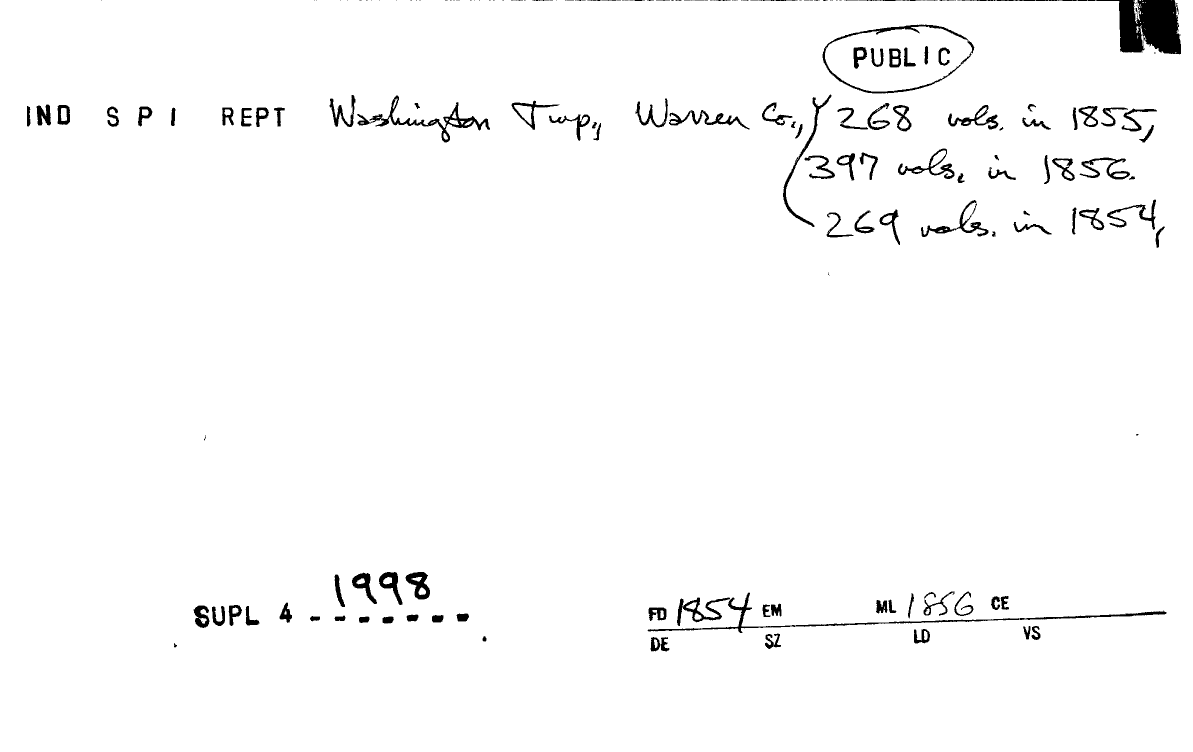 PUBLIC
IND S P I REPT Washington Twp., Warren Co., 268 vols. in 1855,
397 vols. in 1856.
269 vols. in 1854,
1998
SUPL 4 - - - - - - -
FD 1854 EM ML 1856 CE
DE SZ LD VS